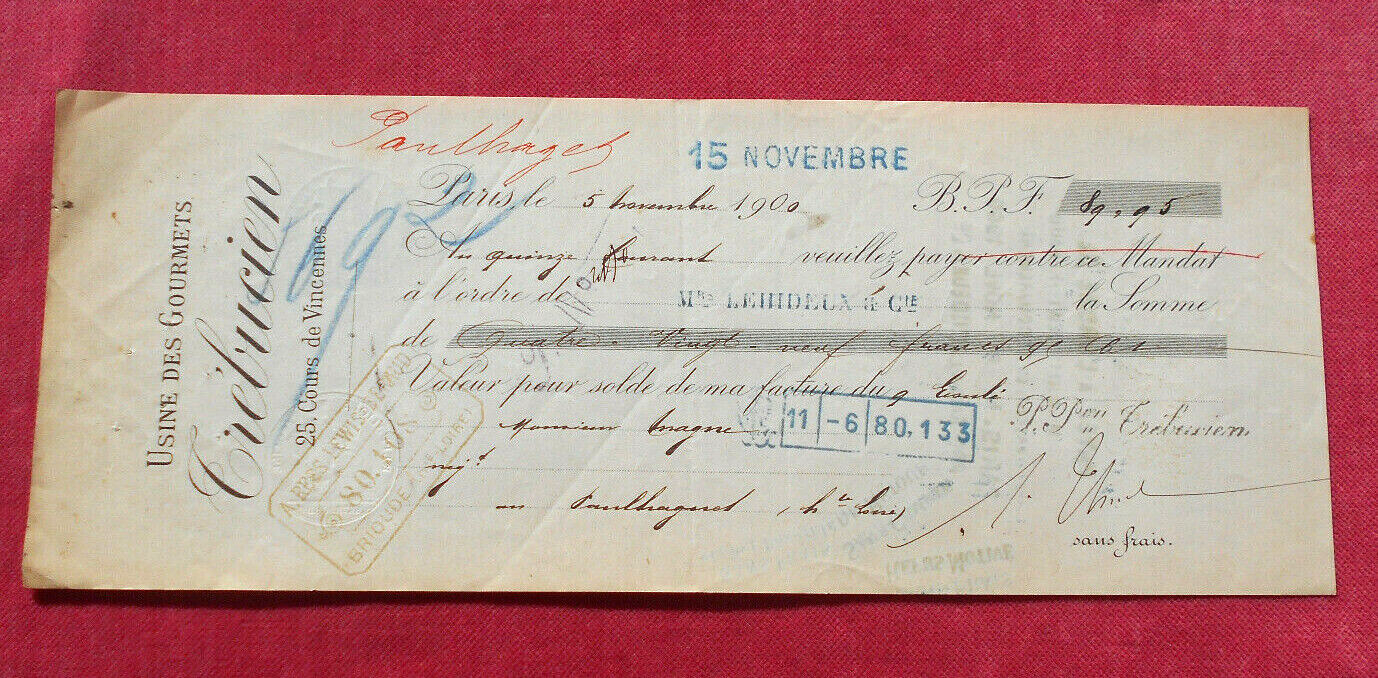 USINE DES GOURMETS
Trébucien
25, Cours de Vincennes
Paulhaget
15 NOVEMBRE
Paris le 5 novembre 1900 B.P.F. 89,95
Au quinze courant veuillez payer contre ce Mandat
à l'ordre de MRS LEHIDEUX & CIE la Somme
de Quatre-Vingt-neuf francs 95 cts
Valeur pour solde de ma facture du 9
11 -6 80,133
P. Pon Trébucien
Monsieur Magne
négt
au Paulhaguet (hte Loire)
sans frais.
BRIOUDE
REFUS MOTIVÉ